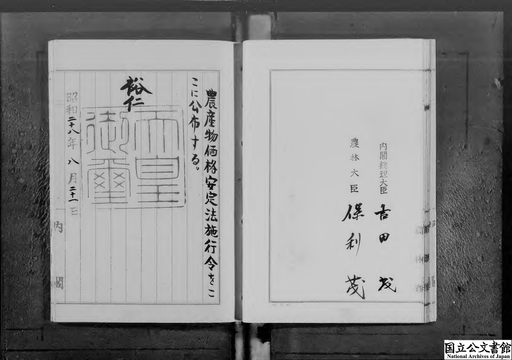 内閣総理大臣 吉田茂
農林大臣 保利茂
農産物価格安定法施行令をこ
こに公布する。
裕仁
天皇
御璽
昭和二十八年八月二十一日
内閣
国立公文書館
National Archives of Japan